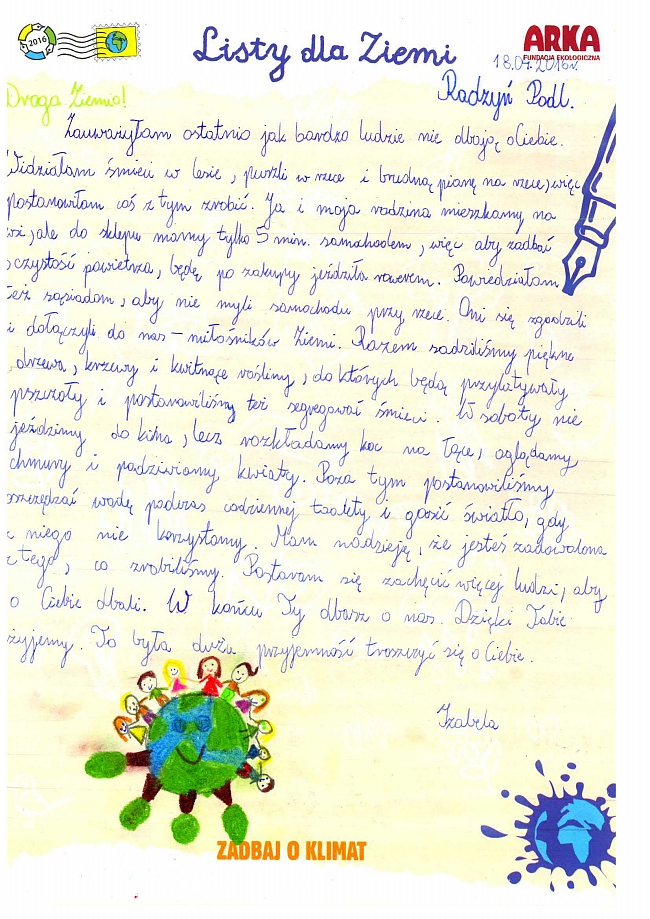 2016
Listy dla Ziemi
ARKA
FUNDACJA EKOLOGICZNA
18.04.2016r.
Radzyń Podl.
Droga Ziemio!
Zauważyłam ostatnio jak bardzo ludzie nie dbają o Ciebie.
Widziałam śmieci w lesie, puszki w rzece i brudną pianę na rzece, więc
postanowiłam coś z tym zrobić. Ja i moja rodzina mieszkamy na
wsi, ale do sklepu mamy tylko 5 min. samochodem, więc aby zadbać
o czystość powietrza, będę po zakupy jeździła rowerem. Powiedziałam
też sąsiadom, aby nie myli samochodu przy rzece. Oni się zgodzili
i dołączyli do nas – miłośników Ziemi. Razem sadziliśmy piękne
drzewa, krzewy i kwitnące rośliny, do których będą przylatywały
pszczoły i postanowiliśmy też segregować śmieci. W soboty nie
jeździmy do kina, lecz rozkładamy koc na łące, oglądamy
chmury i podziwiamy kwiaty. Poza tym postanowiliśmy
oszczędzać wodę podczas codziennej toalety i gasić światło, gdy
z niego nie korzystamy. Mam nadzieję, że jesteś zadowolona
z tego, co zrobiliśmy. Postaram się zachęcić więcej ludzi, aby
o Ciebie dbali. W końcu Ty dbasz o nas. Dzięki Tobie
żyjemy. To była duża przyjemność troszczyć się o Ciebie.
Izabela
ZADBAJ O KLIMAT